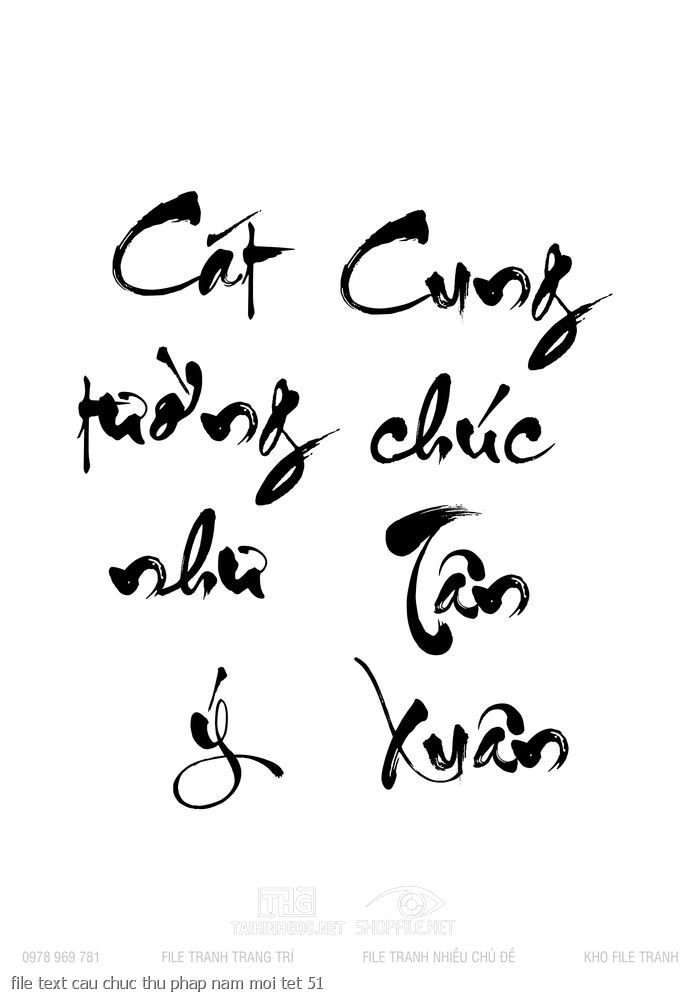 Cát
tường
như
ý
Cung
chúc
Tân
Xuân
THG
TAIHINHGOC.NET SHOPFILE.NET
0978 969 781 FILE TRANH TRANG TRÍ FILE TRANH NHIỀU CHỦ ĐỀ KHO FILE TRANH
file text cau chuc thu phap nam moi tet 51